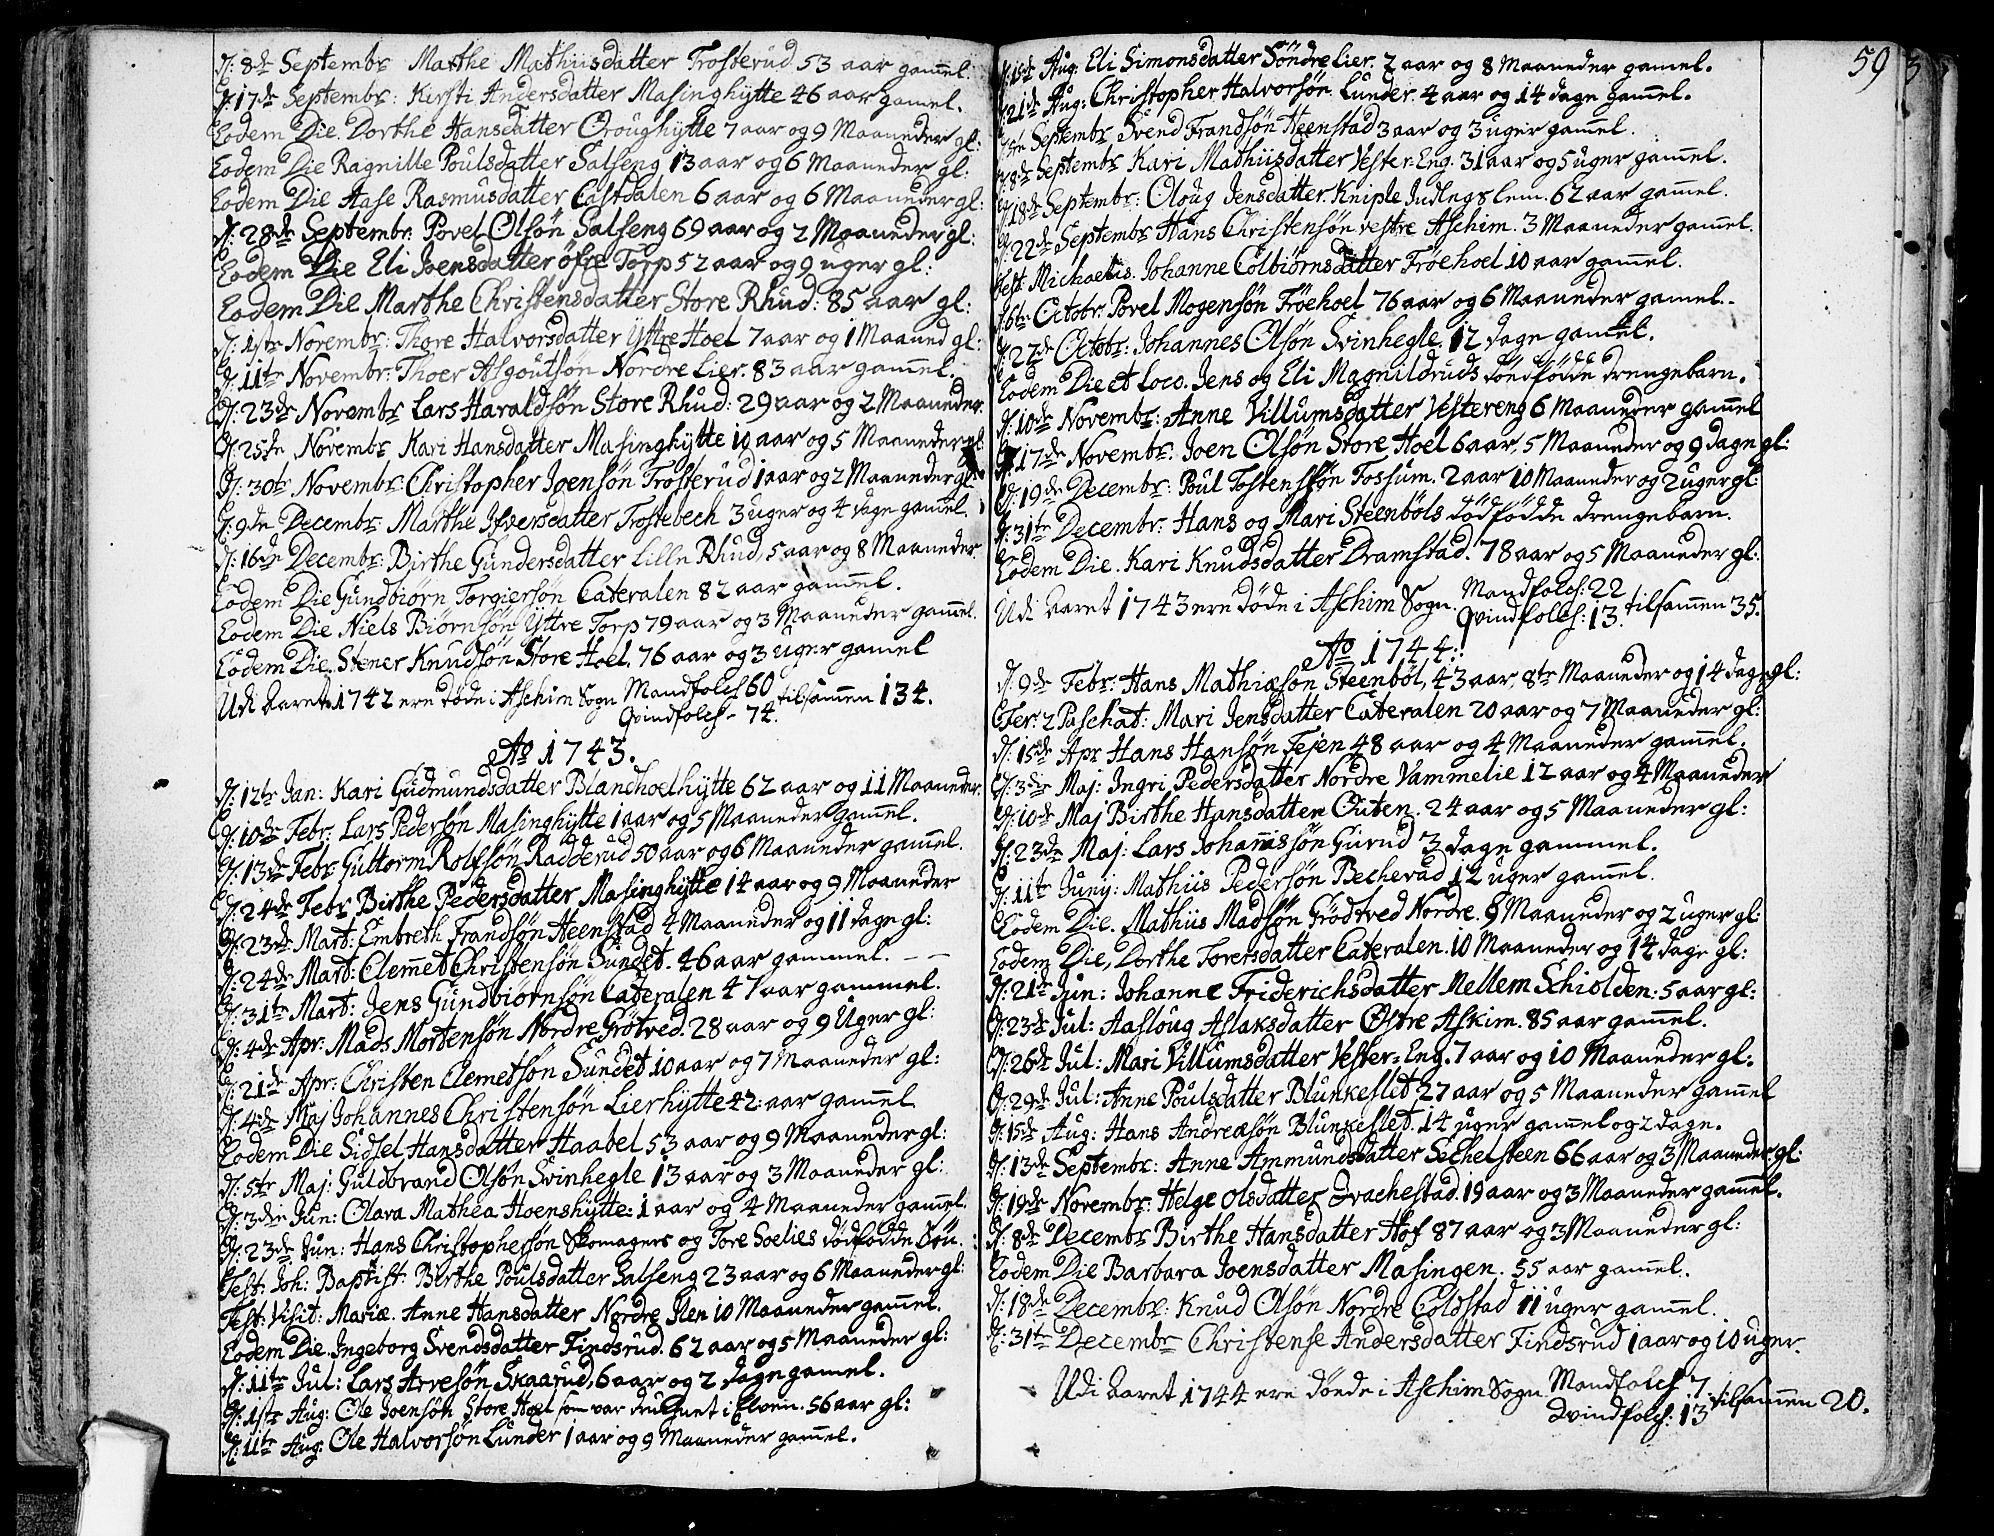 d: 8de Septembr Marthe Mathiisdatter Trosterud 53 aar gamel.
d: 17de Septembr: Kirsti Andersdatter Masinghytte 46 aar gamel.
Eodem Die. Dorthe Hansdatter Oroughytte 7 aar og 9 Maaneder gl:
Eodem Die Ragnille Poulsdatter Salseng 13 aar og 6 Maaneder gl:
Eodem Die Aase Rasmusdatter Castdalen 6 aar og 6 Maaneder gl:
d: 28de Septembr: Povel Olsøn Salseng 69 aar og 2 Maaneder gl:
Eodem Die Eli Joensdatter øfre Torp 52 aar og 9 uger gl:
Eodem Die Marthe Christensdatter Store Rhud: 85 aar gl:
d: 1ste Novembr: Thore Halvorsdatter Yttre Hoel 7 aar og 1 Maaned gl:
d: 11te Novembr: Thoer Asgoutsøn Nordre Lier. 83 aar gamel.
d: 23de Novembr Lars Haraldsøn Store Rhud: 29 aar og 2 Maaneder
d: 25de Novembr Kari Hansdatter Masinghytte 10 aar og 5 Maaneder gl
d: 30te Novembr: Christopher Joensøn Trosterud 1 aar og 2 Maaneder gl:
d: 9de Decembr Marthe Ifversdatter Trostebech 3 uger og 4 dage gamel.
d: 16de Decembr: Birthe Gundersdatter Lille Rhud, 5 aar og 8 Maaneder
Eodem Die Gundbiørn Torgiersøn Cateralen 82 aar gamel.
Eodem Die Niels Biørnsøn Yttre Torp 79 aar og 3 Maaneder gamel.
Eodem Die Stener Knudsøn Store Hoel. 76 aar og 3 uger gamel
Udi Aaret 1742 ere døde i Aschim Sogn Mandfolch 60 tilsamen 134.
Qvindfolch - 74.
Ao 1743.
d: 12te Jan: Kari Gudmundsdatter Blanchoelhytte 62 aar og 11 Maaneder.
d: 10de Febr: Lars Pedersøn Masinghytte 1 aar og 5 Maaneder gamel.
d: 13de Febr: Guttorm Rolfsøn Radderud 50 aar og 6 Maaneder gamel.
d: 24de Febr Birthe Pedersdatter Masinghytte 14 aar og 9 Maaneder
d: 23de Mart: Embreth Frandsøn Heenstad 4 Maaneder og 11 dage gl:
d: 24de Mart: Clemet Christensøn Sundet. 46 aar gammel. - -
d: 31te Mart: Jens Gundbiørnsøn Cateralen 47 aar gammel.
d: 4de Apr: Mads Mortensøn Nordre Grøtved. 28 aar og 9 Uger gl:
d: 21de Apr: Christen Clemetsøn Sundet 10 aar og 7 Maaneder gl:
d: 4de Maj Johannes Christensøn Lierhytte 42: aar gamel
Eodem Die Sidsel Hansdatter Haabel 53 aar og 9 Maaneder gl:
d: 5te Maj: Guldbrand Olsøn Svinhegle 13 aar og 3 Maaneder gl:
d: 3die Jun: Olava Mathea Hoenshytte: 1 aar og 4 Maaneder gamel.
d: 23de Jun: Hans Christophersøn Skomagers og Tore Soelies dødfødde Søn.
Fest: Joh: Baptist: Birthe Poulsdatter Salseng 23 aar og 6 Maaneder gl:
Fest: Visit: Mariæ. Anne Hansdatter Nordre Slen 10 Maaneder gamel.
Eodem Die. Ingeborg Svendsdatter Findsrud. 62 aar og 5 Maaneder gl:
d: 11te Jul: Lars Arvesøn Skaarud, 6 aar og 2 dage gamel.
d: 1ste Aug: Ole Joensøn Store Hoel som var druchnet i Elven. 56 aar gl:
d: 11te Aug: Ole Halvorsøn Lunder 1 aar og 9 Maaneder gamel.
59
d: 15de Aug: Eli Simonsdatter Søndre Lier. 2 aar og 8 Maaneder gamel.
d: 21de Aug: Christopher Halvorsøn Lunder. 4 aar og 14 dage gamel.
Septembr Svend Frandsøn Heenstad 3 aar og 3 uger gamel.
d: 8de Septembr Kari Mathiisdatter Vester-Eng. 31 aar og 5 uger gamel.
d: 18de Septembr: Oloug Jensdatter. Kniple Indlegslem. 62 aar gamel.
d: 22de Septembr Hans Christensøn vestre Aschim. 3 Maaneder gamel.
Fest: Michaelis. Johanne Colbiørnsdatter Frøehoel 10 aar gamel.
d: 6te Octobr: Povel Mogensøn Frøehoel 76 aar og 6 Maaneder gamel.
d: 27de Octobr: Johannes Olsøn Svinhegle. 12 dage gamel.
Eodem Die et Loco. Jens og Eli Magnildruds dødfødde drengebarn.
d: 10de Novembr: Anne Villumsdatter Vestereng 6 Maaneder gamel
d: 17de Novembr: Joen Olsøn Store Hoel 6 aar, 5 Maaneder og 9 dage gl:
d: 19de Decembr: Poul Tostensøn Fossum. 2 aar 10 Maaneder og 2 uger gl:
d: 31te Decembr: Hans og Mari Steenbøls dødfødde drengebarn.
Eodem Die. Kari Knudsdatter Dramstad. 78 aar og 5 Maaneder gl:
Udi Aaret 1743 ere døde i Aschim Sogn. Mandfolch: 22 tilsamen 35.
Qvindfolch: 13.
Ao 1744:
d: 9de Febr: Hans Mathiæsøn Steenbøl, 43 aar, 8te Maaneder og 14 dage gl:
Fer: 2 Paschat: Mari Jensdatter Cateralen 20 aar og 7 Maaneder gl:
d: 15de Apr Hans Hansøn Fejen 48 aar og 4 Maaneder gamel.
d: 3die Maj: Ingri Pedersdatter Nordre Vammelie 12 aar og 4 Maaneder
d: 10de Maj Birthe Hansdatter Outen. 24 aar og 5 Maaneder gl:
d: 23de Maj: Lars Johannissøn Gurud 3 dage gammel.
d: 11te Junij: Mathiis Pedersøn Becherud 12 uger gamel.
Eodem Die. Mathiis Madsøn Grødtved Nordre. 9 Maaneder og 2 uger gl:
Eodem Die, Dorthe Toversdatter Cateralen. 10 Maaneder og 14 dage gl:
d: 21de Jun: Johanne Friderichsdatter Mellem Schiolden: 5 aar gl:
d: 23de Jul: Aasloug Aslaksdatter Østre Askim. 85 aar gamel.
d: 26de Jul: Mari Villumsdatter Vester-Eng. 7 aar og 10 Maaneder gl.
d: 29de Jul: Anne Poulsdatter Blunkeslet 27 aar og 5 Maaneder gamel
d: 15de Aug: Hans Andreæsøn Blunkeslet. 14 uger gamel og 2 dage.
d: 13de Septembr: Anne Ammundsdatter Sechelsteen 66 aar og 3 Maaneder gl:
d: 19de Novembr: Helge Olsdatter Svachestad. 19 aar og 3 Maaneder gamel.
d: 8de Decembr Birthe Hansdatter Hof 87 aar og 3 Maaneder gl:
Eodem Die Barbara Joensdatter Masingen. 55 aar gamel.
d: 18de Decembr: Knud Olsøn Nordre Coldstad 11 uger gamel.
d: 31te Decembr Christense Andersdatter Findsrud 1 aar og 10 uger.
Udi Aaret 1744 ere døde i Aschim Sogn Mandfolch 7 tilsamen 20.
Qvindfolch: 13